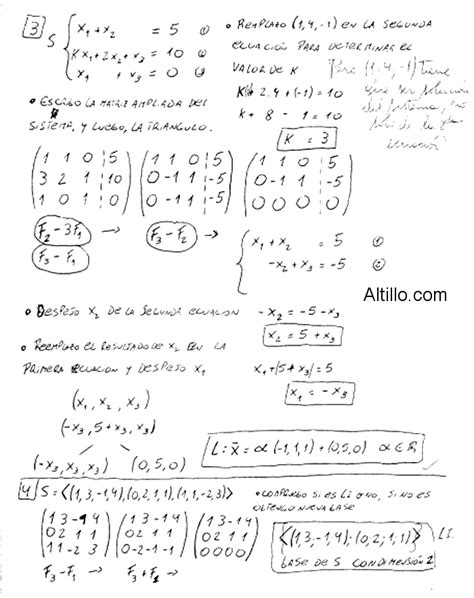 3 S { x₁ + x₂ = 5 ①
Kx₁ + 2x₂ + x₃ = 10 ②
x₁ + x₃ = 0 ③
• REMPLAZO (1,4,-1) EN LA SEGUNDA
ECUACIÓN PARA DETERMINAR EL
VALOR DE K
K·1 + 2.4 + (-1) = 10
K + 8 - 1 = 10
K = 3
Pero (1,4,-1) tiene
que ser solución
del sistema, no
solo de la 2da
ecuación
• ESCRIBO LA MATRIZ AMPLIADA DEL
SISTEMA, Y LUEGO, LA TRIANGULO.
( 1 1 0 | 5 ) ( 1 1 0 | 5 ) ( 1 1 0 | 5 )
( 3 2 1 | 10 ) ( 0 -1 1 | -5 ) ( 0 -1 1 | -5 )
( 1 0 1 | 0 ) ( 0 -1 1 | -5 ) ( 0 0 0 | 0 )
F₂ - 3F₁ → F₃ - F₂ →
F₃ - F₁
{ x₁ + x₂ = 5 ①
-x₂ + x₃ = -5 ②
Altillo.com
• DESPEJO X₂ DE LA SEGUNDA ECUACION
-x₂ = -5 - x₃
x₂ = 5 + x₃
• REEMPLAZO EL RESULTADO DE X₂ EN LA
PRIMERA ECUACION Y DESPEJO X₁
x₁ + (5 + x₃) = 5
x₁ = -x₃
(x₁, x₂, x₃)
(-x₃, 5 + x₃, x₃)
(-x₃, x₃, x₃) (0, 5, 0)
L: x̄ = α(-1,1,1) + (0,5,0) α ∈ R
4 S = <(1,3,-1,4), (0,2,1,1), (1,1,-2,3)>
• COMPRUEBO SI ES LI O NO, SI NO ES
OBTENGO NUEVA BASE
( 1 3 -1 4 ) ( 1 3 -1 4 ) ( 1 3 -1 4 )
( 0 2 1 1 ) ( 0 2 1 1 ) ( 0 2 1 1 )
( 1 1 -2 3 ) ( 0 -2 -1 -1 ) ( 0 0 0 0 )
F₃ - F₁ → F₃ + F₂ →
{(1,3,-1,4); (0,2,1,1)}
BASE DE S CON DIMENSIÓN 2